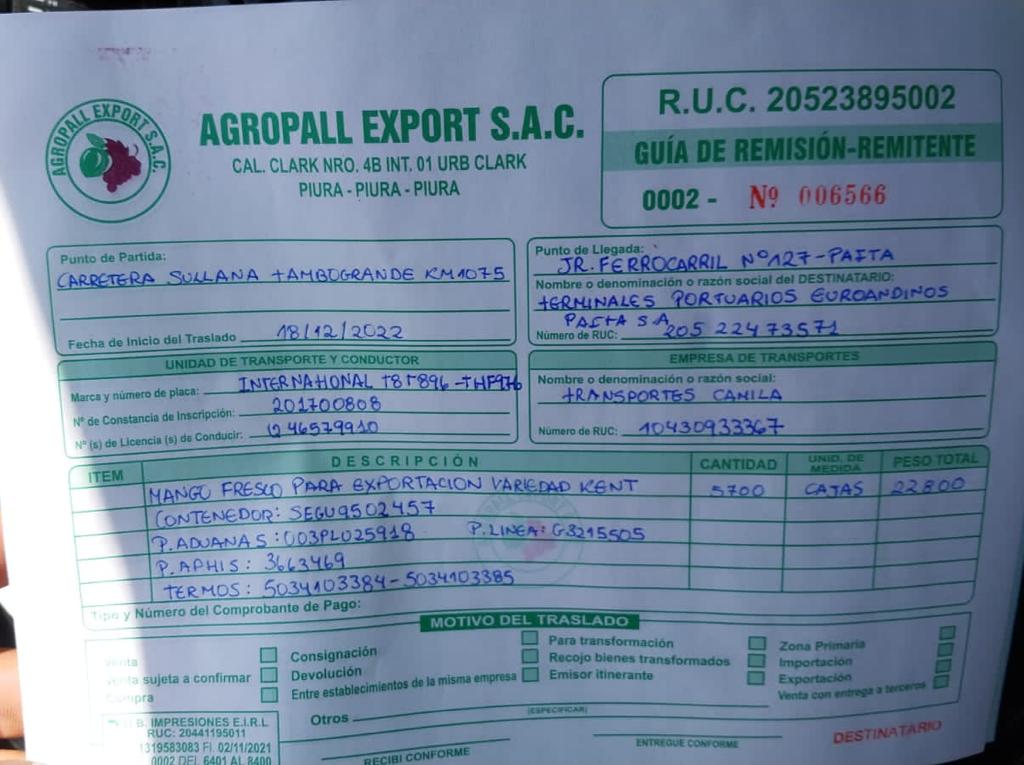 AGROPALL EXPORT S.A.C.
AGROPALL EXPORT S.A.C.
CAL. CLARK NRO. 4B INT. 01 URB CLARK
PIURA - PIURA - PIURA
R.U.C. 20523895002
GUÍA DE REMISIÓN-REMITENTE
0002 - Nº 006566
Punto de Partida:
CARRETERA SULLANA TAMBOGRANDE KM1075
Fecha de Inicio del Traslado 18/12/2022
Punto de Llegada:
JR. FERROCARRIL Nº127-PAITA
Nombre o denominación o razón social del DESTINATARIO:
TERMINALES PORTUARIOS EUROANDINOS
PAITA S A
Número de RUC: 20522473571
UNIDAD DE TRANSPORTE Y CONDUCTOR
Marca y número de placa: INTERNATIONAL T8T896-THF976
Nº de Constancia de Inscripción: 201700808
Nº (s) de Licencia (s) de Conducir: Q46579910
EMPRESA DE TRANSPORTES
Nombre o denominación o razón social:
TRANSPORTES CAMILA
Número de RUC: 10430933367
ITEM DESCRIPCIÓN CANTIDAD UNID. DE MEDIDA PESO TOTAL
MANGO FRESCO PARA EXPORTACION VARIEDAD KENT 5700 CAJAS 22800
CONTENEDOR: SEGU9502457
P.ADUANAS: 003PL025918 P.LINEA: G3215505
P.APHIS: 3663469
TERMOS: 5034103384-5034103385
Tipo y Número del Comprobante de Pago:
MOTIVO DEL TRASLADO
Venta
Venta sujeta a confirmar
Compra
Consignación
Devolución
Entre establecimientos de la misma empresa
Para transformación
Recojo bienes transformados
Emisor itinerante
Zona Primaria
Importación
Exportación
Venta con entrega a terceros
Otros
(ESPECIFICAR)
B. IMPRESIONES E.I.R.L
RUC: 20441195011
1319583083 FI. 02/11/2021
0002 DEL 6401 AL 8400
RECIBI CONFORME
ENTREGUE CONFORME
DESTINATARIO